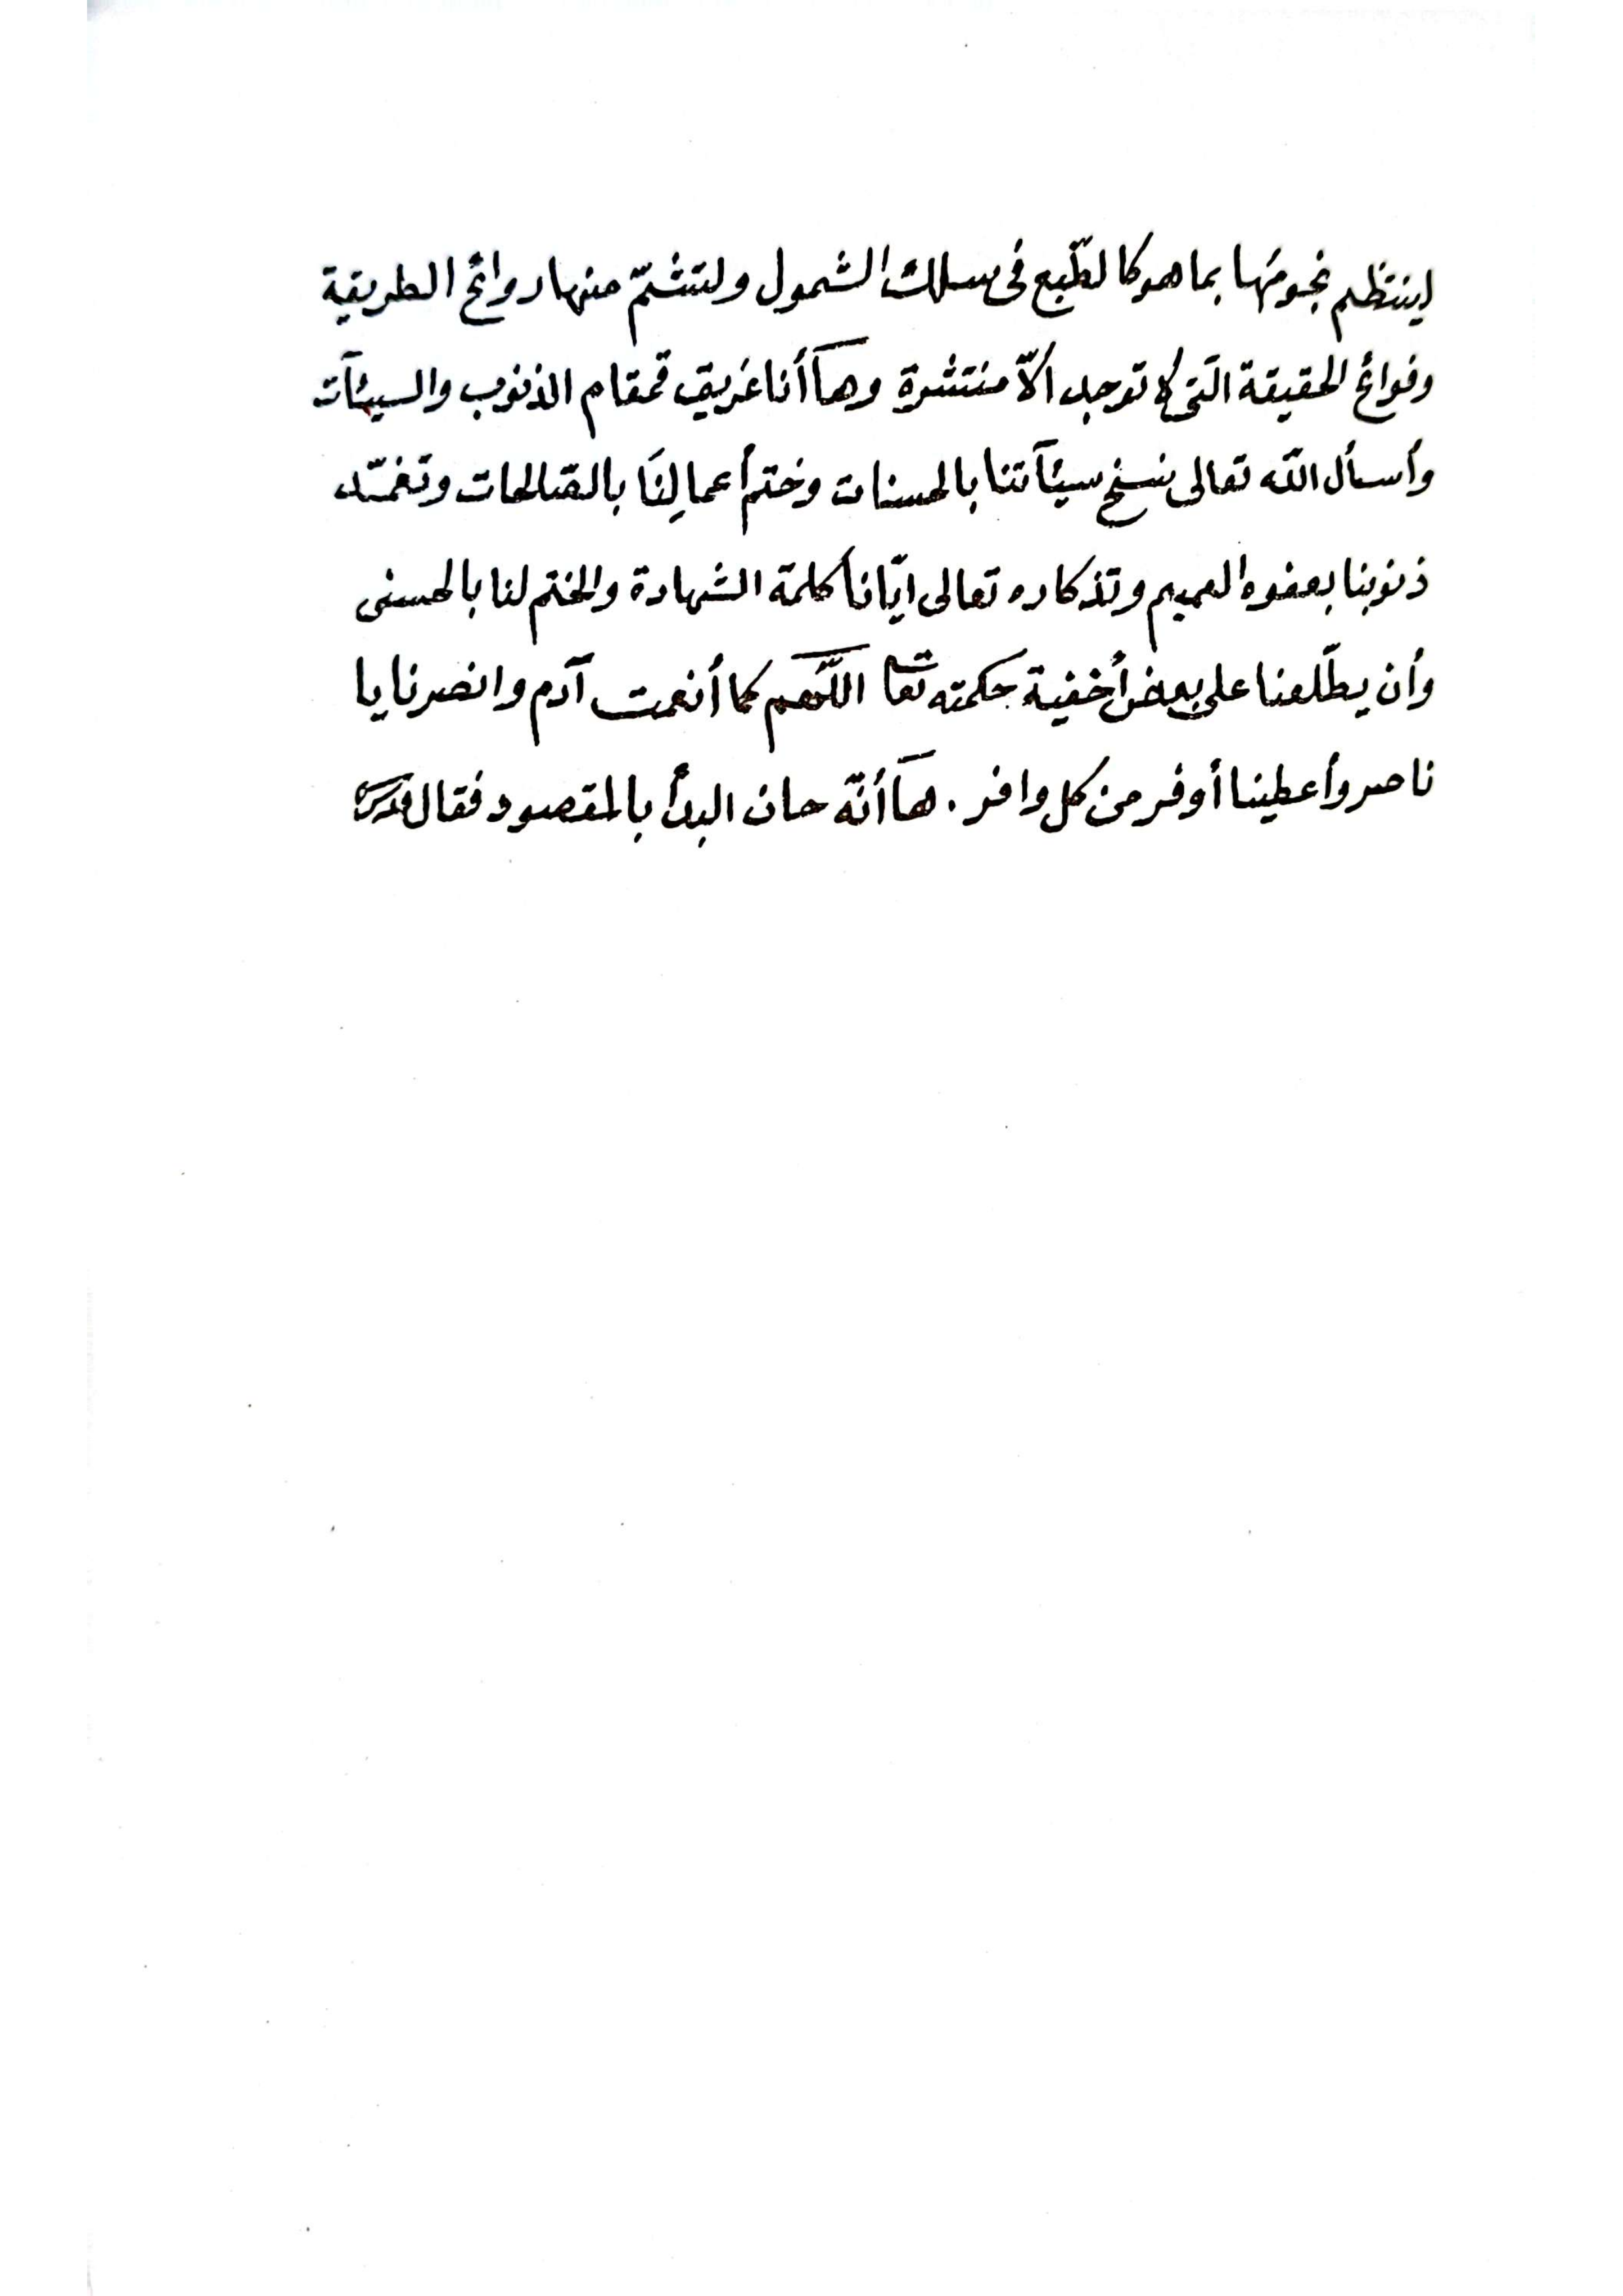 لينتظم نجومها بما هو كالطّبع فى سلك الشمول ولتشتمّ منها روائح الطريقة
وفوائح الحقيقة الّتى لا توجد الّا منتشرة وهآ أنا غريق قمقام الذنوب والسيئآت
وأسأل اللّه تعالى نسخ سيئآتنا بالحسنات وختم أعمالِنَا بالصّالحات وتغمّد
ذنوبنا بعفوه العميم وتذكاره تعالى ايّانا كلمة الشهادة والختم لنا بالحسنى
وأن يطّلعنا على بعض أخفية حكمته تعا اللّهم كما أنعمت آدم وانصرنا يا
ناصر وأعطينا أوفر من كل وافر . هآ أنّه حان البدأ بالمقصود فقال